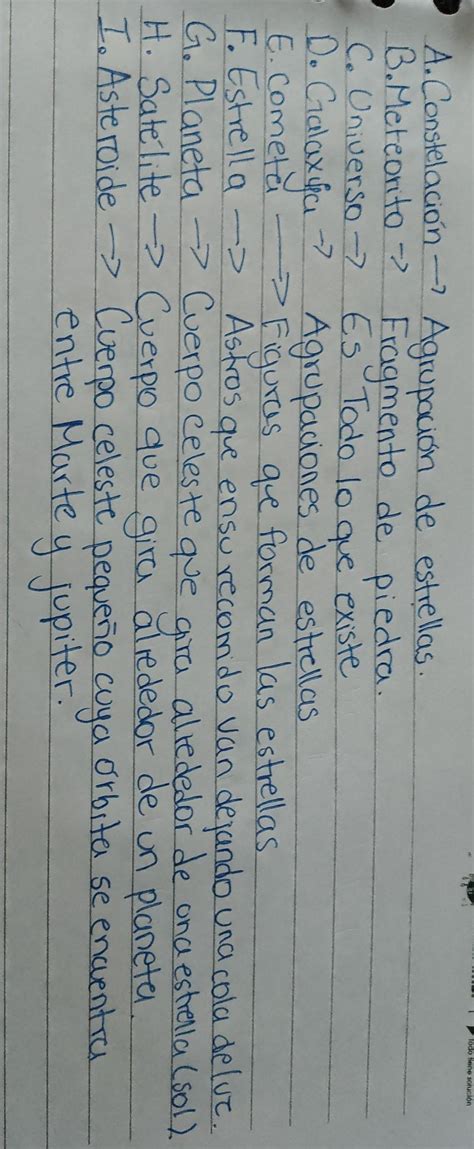 A. Constelación → Agrupación de estrellas.
B. Meteorito → Fragmento de piedra.
C. Universo → Es Todo lo que existe
D. Galaxia → Agrupaciones de estrellas
E. Cometa → Figuras que forman las estrellas
F. Estrella → Astros que en su recorrido van dejando una cola de luz.
G. Planeta → Cuerpo celeste que gira alrededor de una estrella (sol).
H. Satélite → Cuerpo que gira alrededor de un planeta
I. Asteroide → Cuerpo celeste pequeño cuya órbita se encuentra
entre Marte y jupiter.
Todo tiene solución